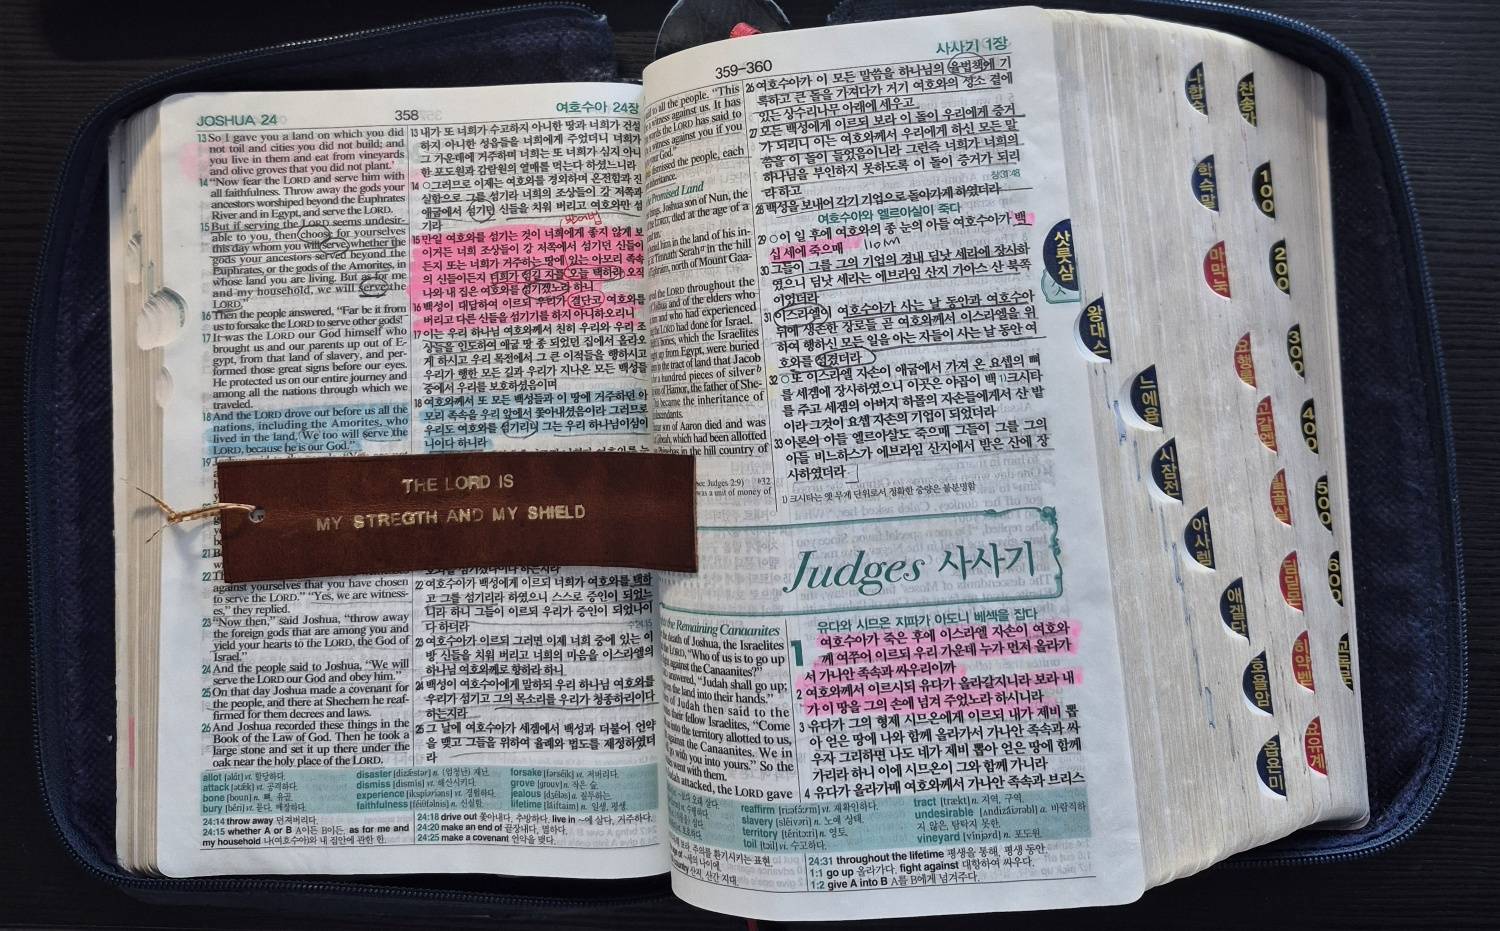 JOSHUA 24
358
여호수아 24장
13 So I gave you a land on which you did
not toil and cities you did not build; and
you live in them and eat from vineyards
and olive groves that you did not plant.'
14 "Now fear the LORD and serve him with
all faithfulness. Throw away the gods your
ancestors worshiped beyond the Euphrates
River and in Egypt, and serve the LORD.
15 But if serving the LORD seems undesir-
able to you, then choose for yourselves
this day whom you will serve, whether the
gods your ancestors served beyond the
Euphrates, or the gods of the Amorites, in
whose land you are living. But as for me
and my household, we will serve the
LORD."
16 Then the people answered, "Far be it from
us to forsake the LORD to serve other gods!
17 It was the LORD our God himself who
brought us and our parents up out of E-
gypt, from that land of slavery, and per-
formed those great signs before our eyes.
He protected us on our entire journey and
among all the nations through which we
traveled.
18 And the LORD drove out before us all the
nations, including the Amorites, who
lived in the land. We too will serve the
LORD, because he is our God."
19
21
22
against yourselves that you have chosen
to serve the LORD." "Yes, we are witness-
es," they replied.
23 "Now then," said Joshua, "throw away
the foreign gods that are among you and
yield your hearts to the LORD, the God of
Israel."
24 And the people said to Joshua, "We will
serve the LORD our God and obey him."
25 On that day Joshua made a covenant for
the people, and there at Shechem he reaf-
firmed for them decrees and laws.
26 And Joshua recorded these things in the
Book of the Law of God. Then he took a
large stone and set it up there under the
oak near the holy place of the LORD.
13 내가 또 너희가 수고하지 아니한 땅과 너희가 건설
하지 아니한 성읍들을 너희에게 주었더니 너희가
그 가운데에 거주하며 너희는 또 너희가 심지 아니
한 포도원과 감람원의 열매를 먹는다 하셨느니라
14 ○그러므로 이제는 여호와를 경외하며 온전함과 진
실함으로 그를 섬기라 너희의 조상들이 강 저쪽과
애굽에서 섬기던 신들을 치워 버리고 여호와만 섬
기라
15 만일 여호와를 섬기는 것이 너희에게 좋지 않게 보
이거든 너희 조상들이 강 저쪽에서 섬기던 신들이
든지 또는 너희가 거주하는 땅에 있는 아모리 족속
의 신들이든지 너희가 섬길 자를 오늘 택하라 오직
나와 내 집은 여호와를 섬기겠노라 하니
16 백성이 대답하여 이르되 우리가 결단코 여호와를
버리고 다른 신들을 섬기기를 하지 아니하오리니
17 이는 우리 하나님 여호와께서 친히 우리와 우리 조
상들을 인도하여 애굽 땅 종 되었던 집에서 올라오
게 하시고 우리 목전에서 그 큰 이적들을 행하시고
우리가 행한 모든 길과 우리가 지나온 모든 백성들
중에서 우리를 보호하셨음이며
18 여호와께서 또 모든 백성들과 이 땅에 거주하던 아
모리 족속을 우리 앞에서 쫓아내셨음이라 그러므로
우리도 여호와를 섬기리니 그는 우리 하나님이심이
니이다 하니라
THE LORD IS
MY STREGTH AND MY SHIELD
22 여호수아가 백성에게 이르되 너희가 여호와를 택하
고 그를 섬기리라 하였으니 스스로 증인이 되었느
니라 하니 그들이 이르되 우리가 증인이 되었나이
다 하더라
23 여호수아가 이르되 그러면 이제 너희 중에 있는 이
방 신들을 치워 버리고 너희의 마음을 이스라엘의
하나님 여호와께로 향하라 하니
24 백성이 여호수아에게 말하되 우리 하나님 여호와를
우리가 섬기고 그의 목소리를 우리가 청종하리이다
하는지라
25 그 날에 여호수아가 세겜에서 백성과 더불어 언약
을 맺고 그들을 위하여 율례와 법도를 제정하였더
라
allot [əlɑ́t] vt. 할당하다.
attack [ətǽk] vt. 공격하다.
bone [boun] n. 뼈, 유골.
bury [béri] vt. 묻다, 매장하다.
disaster [dizǽstər] n. (엄청난) 재난.
dismiss [dismís] vt. 해산시키다.
experience [ikspíəriəns] vt. 경험하다.
faithfulness [féiθfəlnis] n. 신실함.
forsake [fərséik] vt. 저버리다.
grove [grouv] n. 작은 숲.
jealous [dʒéləs] a. 질투하는.
lifetime [láiftaim] n. 일생, 평생.
24:14 throw away 던져버리다.
24:15 whether A or B A이든 B이든. as for me and
my household 나(여호수아)와 내 집안에 관한 한.
24:18 drive out 쫓아내다, 추방하다. live in ~에 살다, 거주하다.
24:20 make an end of 끝장내다, 멸하다.
24:25 make a covenant 언약을 맺다.
359-360
사사기 1장
to all the people. "This
witness against us. It has
words the LORD has said to
a witness against you if you
your God."
dismissed the people, each
inheritance.
Promised Land
things, Joshua son of Nun, the
LORD, died at the age of a
him in the land of his in-
Timnath Serah in the hill
Ephraim, north of Mount Gaa-
the LORD throughout
Joshua and of the elders who
and who had experienced
LORD had done for Israel.
bones, which the Israelites
up from Egypt, were buried
in the tract of land that Jacob
a hundred pieces of silver
of Hamor, the father of She-
became the inheritance of
descendants.
son of Aaron died and was
Gibeah, which had been allotted
Phinehas in the hill country of
see Judges 2:9) b32
was a unit of money of
26 여호수아가 이 모든 말씀을 하나님의 율법책에 기
록하고 큰 돌을 가져다가 거기 여호와의 성소 곁에
있는 상수리나무 아래에 세우고
27 모든 백성에게 이르되 보라 이 돌이 우리에게 증거
가 되리니 이는 여호와께서 우리에게 하신 모든 말
씀을 이 돌이 들었음이니라 그런즉 너희가 너희의
하나님을 부인하지 못하도록 이 돌이 증거가 되리
라 하고
창31:48
28 백성을 보내어 각기 기업으로 돌아가게 하였더라
여호수아와 엘르아살이 죽다
29 ○이 일 후에 여호와의 종 눈의 아들 여호수아가 백
십 세에 죽으매
30 그들이 그를 그의 기업의 경내 딤낫 세라에 장사하
였으니 딤낫 세라는 에브라임 산지 가아스 산 북쪽
이었더라
31 이스라엘이 여호수아가 사는 날 동안과 여호수아
뒤에 생존한 장로들 곧 여호와께서 이스라엘을 위
하여 행하신 모든 일을 아는 자들이 사는 날 동안 여
호와를 섬겼더라
32 ○또 이스라엘 자손이 애굽에서 가져 온 요셉의 뼈
를 세겜에 장사하였으니 이곳은 야곱이 백 1)크시타
를 주고 세겜의 아버지 하몰의 자손들에게서 산 밭
이라 그것이 요셉 자손의 기업이 되었더라
33 아론의 아들 엘르아살도 죽으매 그들이 그를 그의
아들 비느하스가 에브라임 산지에서 받은 산에 장
사하였더라
1) 크시타는 옛 무게 단위로서 정확한 중량은 불분명함
Judges 사사기
the Remaining Canaanites
death of Joshua, the Israelites
LORD, "Who of us is to go up
against the Canaanites?"
answered, "Judah shall go up;
the land into their hands."
of Judah then said to the
their fellow Israelites, "Come
the territory allotted to us,
against the Canaanites. We in
with you into yours." So the
went with them.
attacked, the LORD gave
유다와 시므온 지파가 아도니 베섹을 잡다
1 여호수아가 죽은 후에 이스라엘 자손이 여호와
께 여쭈어 이르되 우리 가운데 누가 먼저 올라가
서 가나안 족속과 싸우리이까
2 여호와께서 이르시되 유다가 올라갈지니라 보라 내
가 이 땅을 그의 손에 넘겨 주었노라 하시니라
3 유다가 그의 형제 시므온에게 이르되 내가 제비 뽑
아 얻은 땅에 나와 함께 올라가서 가나안 족속과 싸
우자 그리하면 나도 네가 제비 뽑아 얻은 땅에 함께
가리라 하니 이에 시므온이 그와 함께 가니라
4 유다가 올라가매 여호와께서 가나안 족속과 브리스
reaffirm [rìːəfə́ːrm] vt. 재확인하다.
slavery [sléivəri] n. 노예 상태.
territory [téritɔ̀ːri] n. 영토.
toil [tɔil] vi. 수고하다.
tract [trækt] n. 지역, 구역.
undesirable [ʌ̀ndizáiərəbl] a. 바람직하
지 않은, 탐탁지 못한.
vineyard [vínjərd] n. 포도원.
24:31 throughout the lifetime 평생을 통해, 평생 동안.
1:1 go up 올라가다. fight against 대항하여 싸우다.
1:2 give A into B A를 B에게 넘겨주다.
삿룻삼
왕대스
느에욥
시잠전
아사렘
애겔단
호욜암
옵욘미
나합습
학슥말
마막눅
요행롬
고갈엡
빌골살
딤딛몬
히약벧
요유계
찬송가
100
200
300
400
500
600
교독문